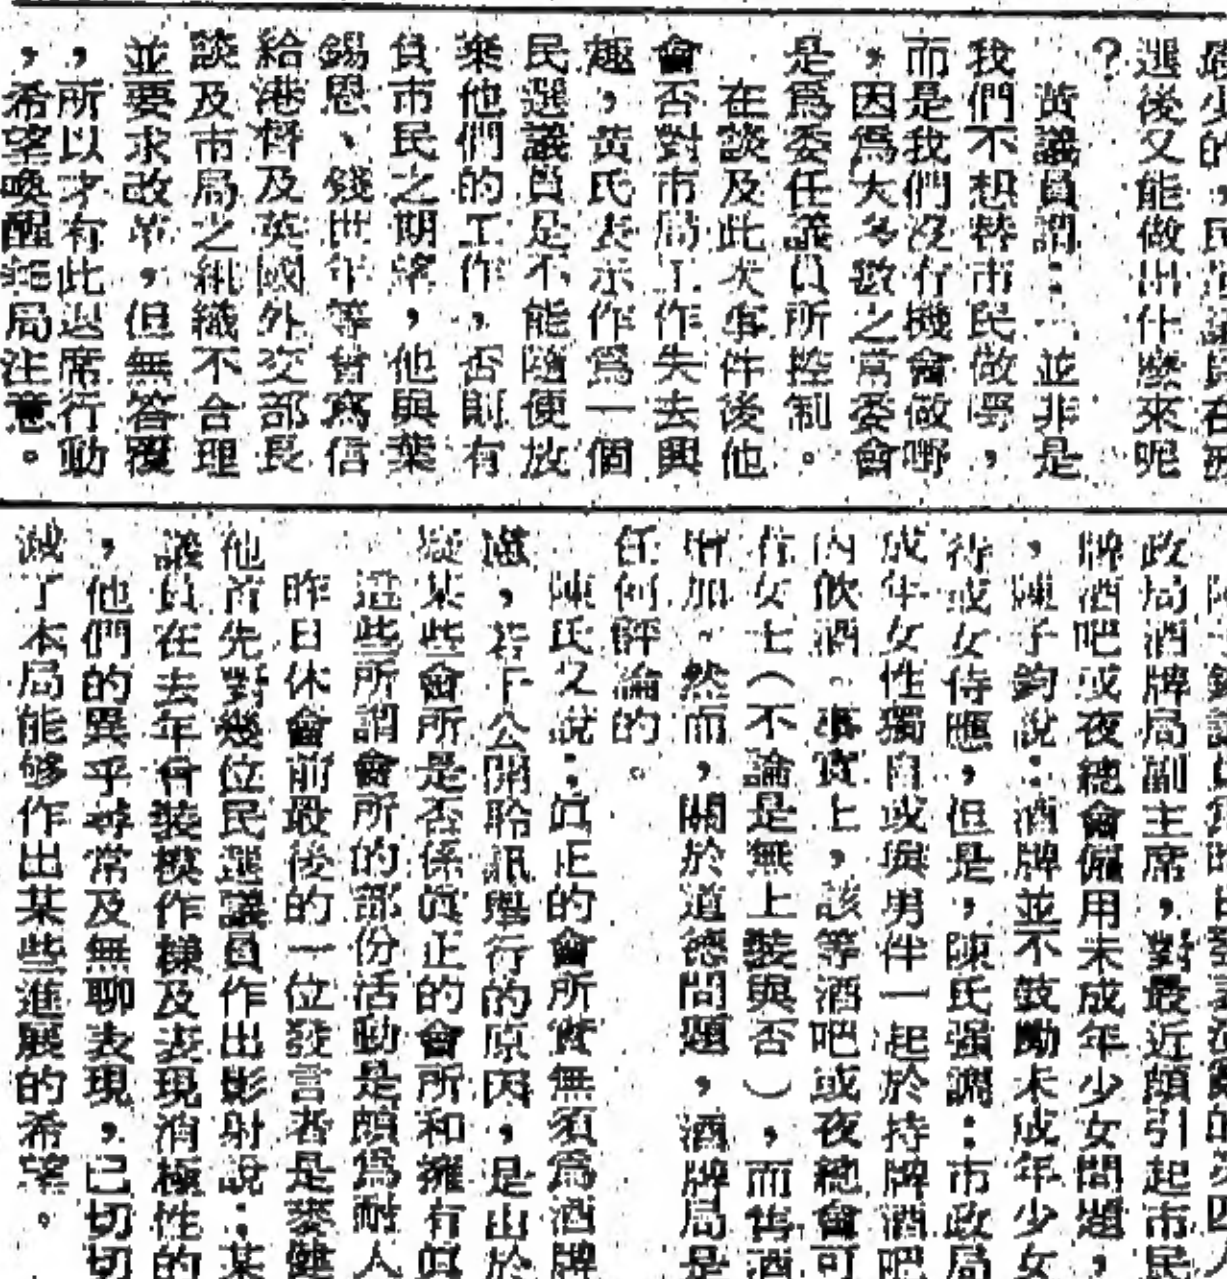 最少的
選後又能做出什麼來呢
？
黃議員謂：並非是
我們不想替市民做嘢，
而是我們沒有機會做嘢
，因爲大多數之常委會
是爲委任議員所控制。
在談及此次事件後他
會否對市局工作失去興
趣，黃氏表示作爲一個
民選議員是不能隨便放
棄他們的工作，否則有
負市民之期望，他與葉
錫恩、錢世年等曾寫信
給港督及英國外交部長
談及市局之組織不合理
並要求改革，但無答覆
，所以才有此退席行動
，希望喚醒當局注意。
政局酒牌局副主席，對最近頗引起市民
牌酒吧或夜總會僱用未成年少女問題，
，陳子鈞說：酒牌並不鼓勵未成年少女
待或女侍應，但是，陳氏强調：市政局
成年女性獨自或與男伴一起於持牌酒吧
內飲酒。事實上，該等酒吧或夜總會可
有女士（不論是無上裝與否），而售酒
增加。然而，關於道德問題，酒牌局是
任何評論的。
陳氏又說：眞正的會所實無須爲酒牌
，若干公開聆訊舉行的原因，是由於
疑某些會所是否係眞正的會所和擁有眞
這些所謂會所的部份活動是頗爲耐人
昨日休會前最後的一位發言者是麥健
他首先對幾位民選議員作出影射說：某
議員在去年曾裝模作樣及表現消極性的
，他們的異乎尋常及無聊表現，已切切
滅了本局能够作出某些進展的希望。